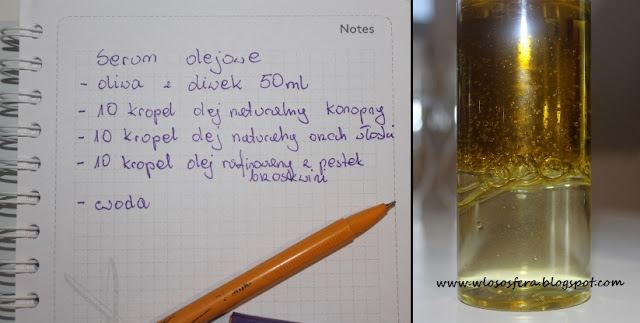 Notes
Serum olejowe
- oliwa z oliwek 50ml
- 10 kropel olej naturalny konopny
- 10 kropel olej naturalny orzech włoski
- 10 kropel olej rafinowany z pestek
brzoskwini
- woda
www.wlososfera.blogspot.com